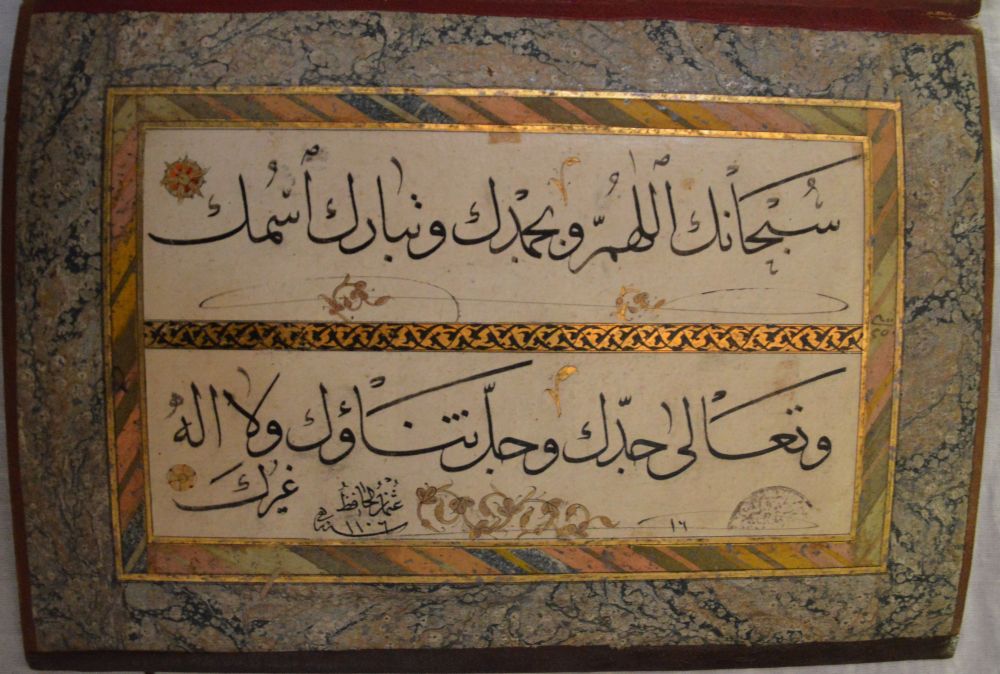 سُبْحَانَك اللّٰهُمَّ وبحمْدِك وتبارك ٱسْمُك
وتعَالىٰ جدّك وجلّ ثَنَاؤك ولا اله
غيرك
عثمان الحافظ
١١٠٦
١٦